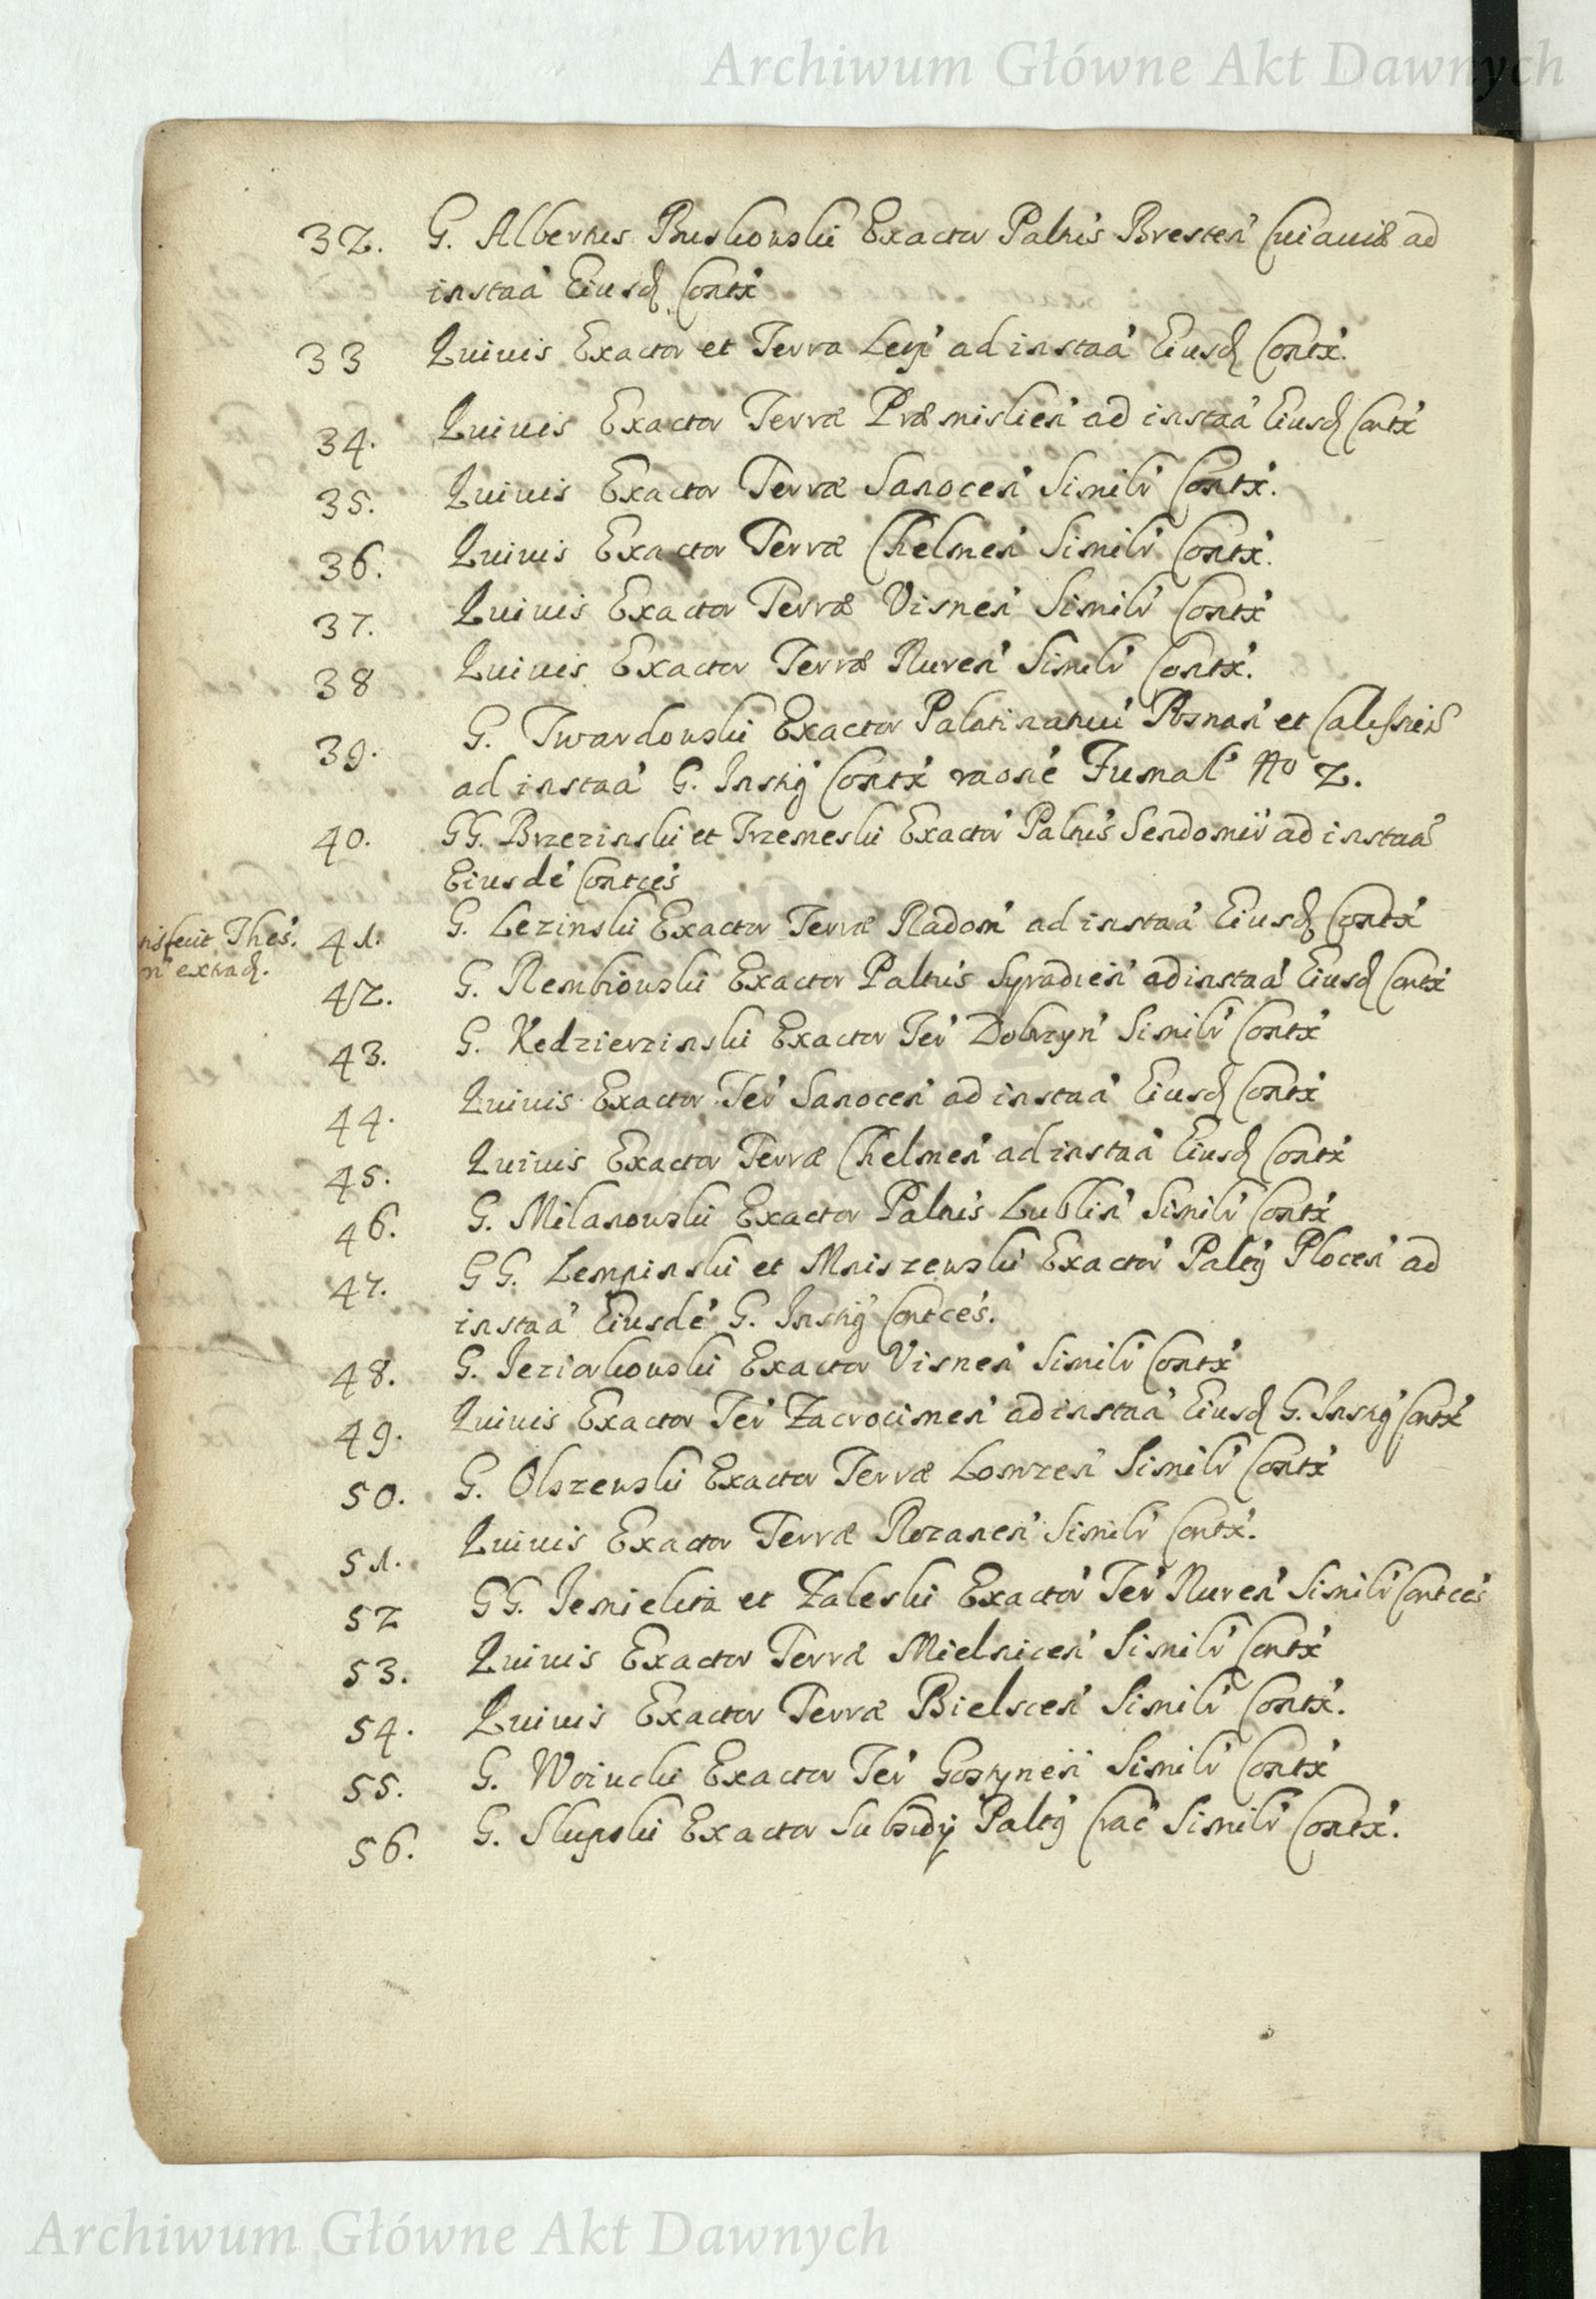 Archiwum Główne Akt Dawnych
32. G. Albertus Bruskowski Exactor Paltus Bresten Cuiauiæ ad
instaã Eiusd Contx
33 Quiuis Exactor et Terra Leop ad instaã Eiusd Contx.
34. Quiuis Exactor Terræ Præmislien ad instaã Eiusd Contx
35. Quiuis Exactor Terræ Sanocen Simili Contx.
36. Quiuis Exactor Terræ Chelmen Simili Contx.
37. Quiuis Exactor Terræ Visnen Simili Contx
38 Quiuis Exactor Terræ Nuren Simili Contx.
39. G. Twardowski Exactor Palatinatuũ Posnan et Calissien
ad instaã G. Instig Contx raone Fumal No 2.
40. GG. Brzezinski et Trzemeski Exactor Paltus Sendomir ad instaã
Eiusde Contces
nisfecit Thes.
n extrad.
41. G. Lezinski Exactor Terræ Radom ad instaã Eiusd Contx
42. G. Rembiowski Exactor Paltus Syradien ad instaã Eiusd Contx
43. G. Kedzierzinski Exactor Ter Dobrzyn Simili Contx
44. Quiuis Exactor Ter Sanocen ad instaã Eiusd Contx
45. Quiuis Exactor Terræ Chelmen ad instaã Eiusd Contx
46. G. Milanowski Exactor Paltus Lublin Simili Contx
47. GG. Lempinski et Mniszewski Exactor Paltg Plocen ad
instaã Eiusde G. Instig Contces.
48. G. Jeziorkowski Exactor Visnen Simili Contx
49. Quiuis Exactor Ter Zacrocimen ad instaã Eiusd G. Instig Contx
50. G. Olszewski Exactor Terræ Lomzen Simili Contx
51. Quiuis Exactor Terræ Rozanen Simili Contx.
52 GG. Jemielita et Zaleski Exactor Ter Nuren Simili Contces
53. Quiuis Exactor Terræ Mielnicen Simili Contx
54. Quiuis Exactor Terræ Bielscen Simili Contx.
55. G. Woiucki Exactor Ter Gostynen Simili Contx
56. G. Slupski Exactor Subsidy Paltg Crac Simili Contx.
Archiwum Główne Akt Dawnych